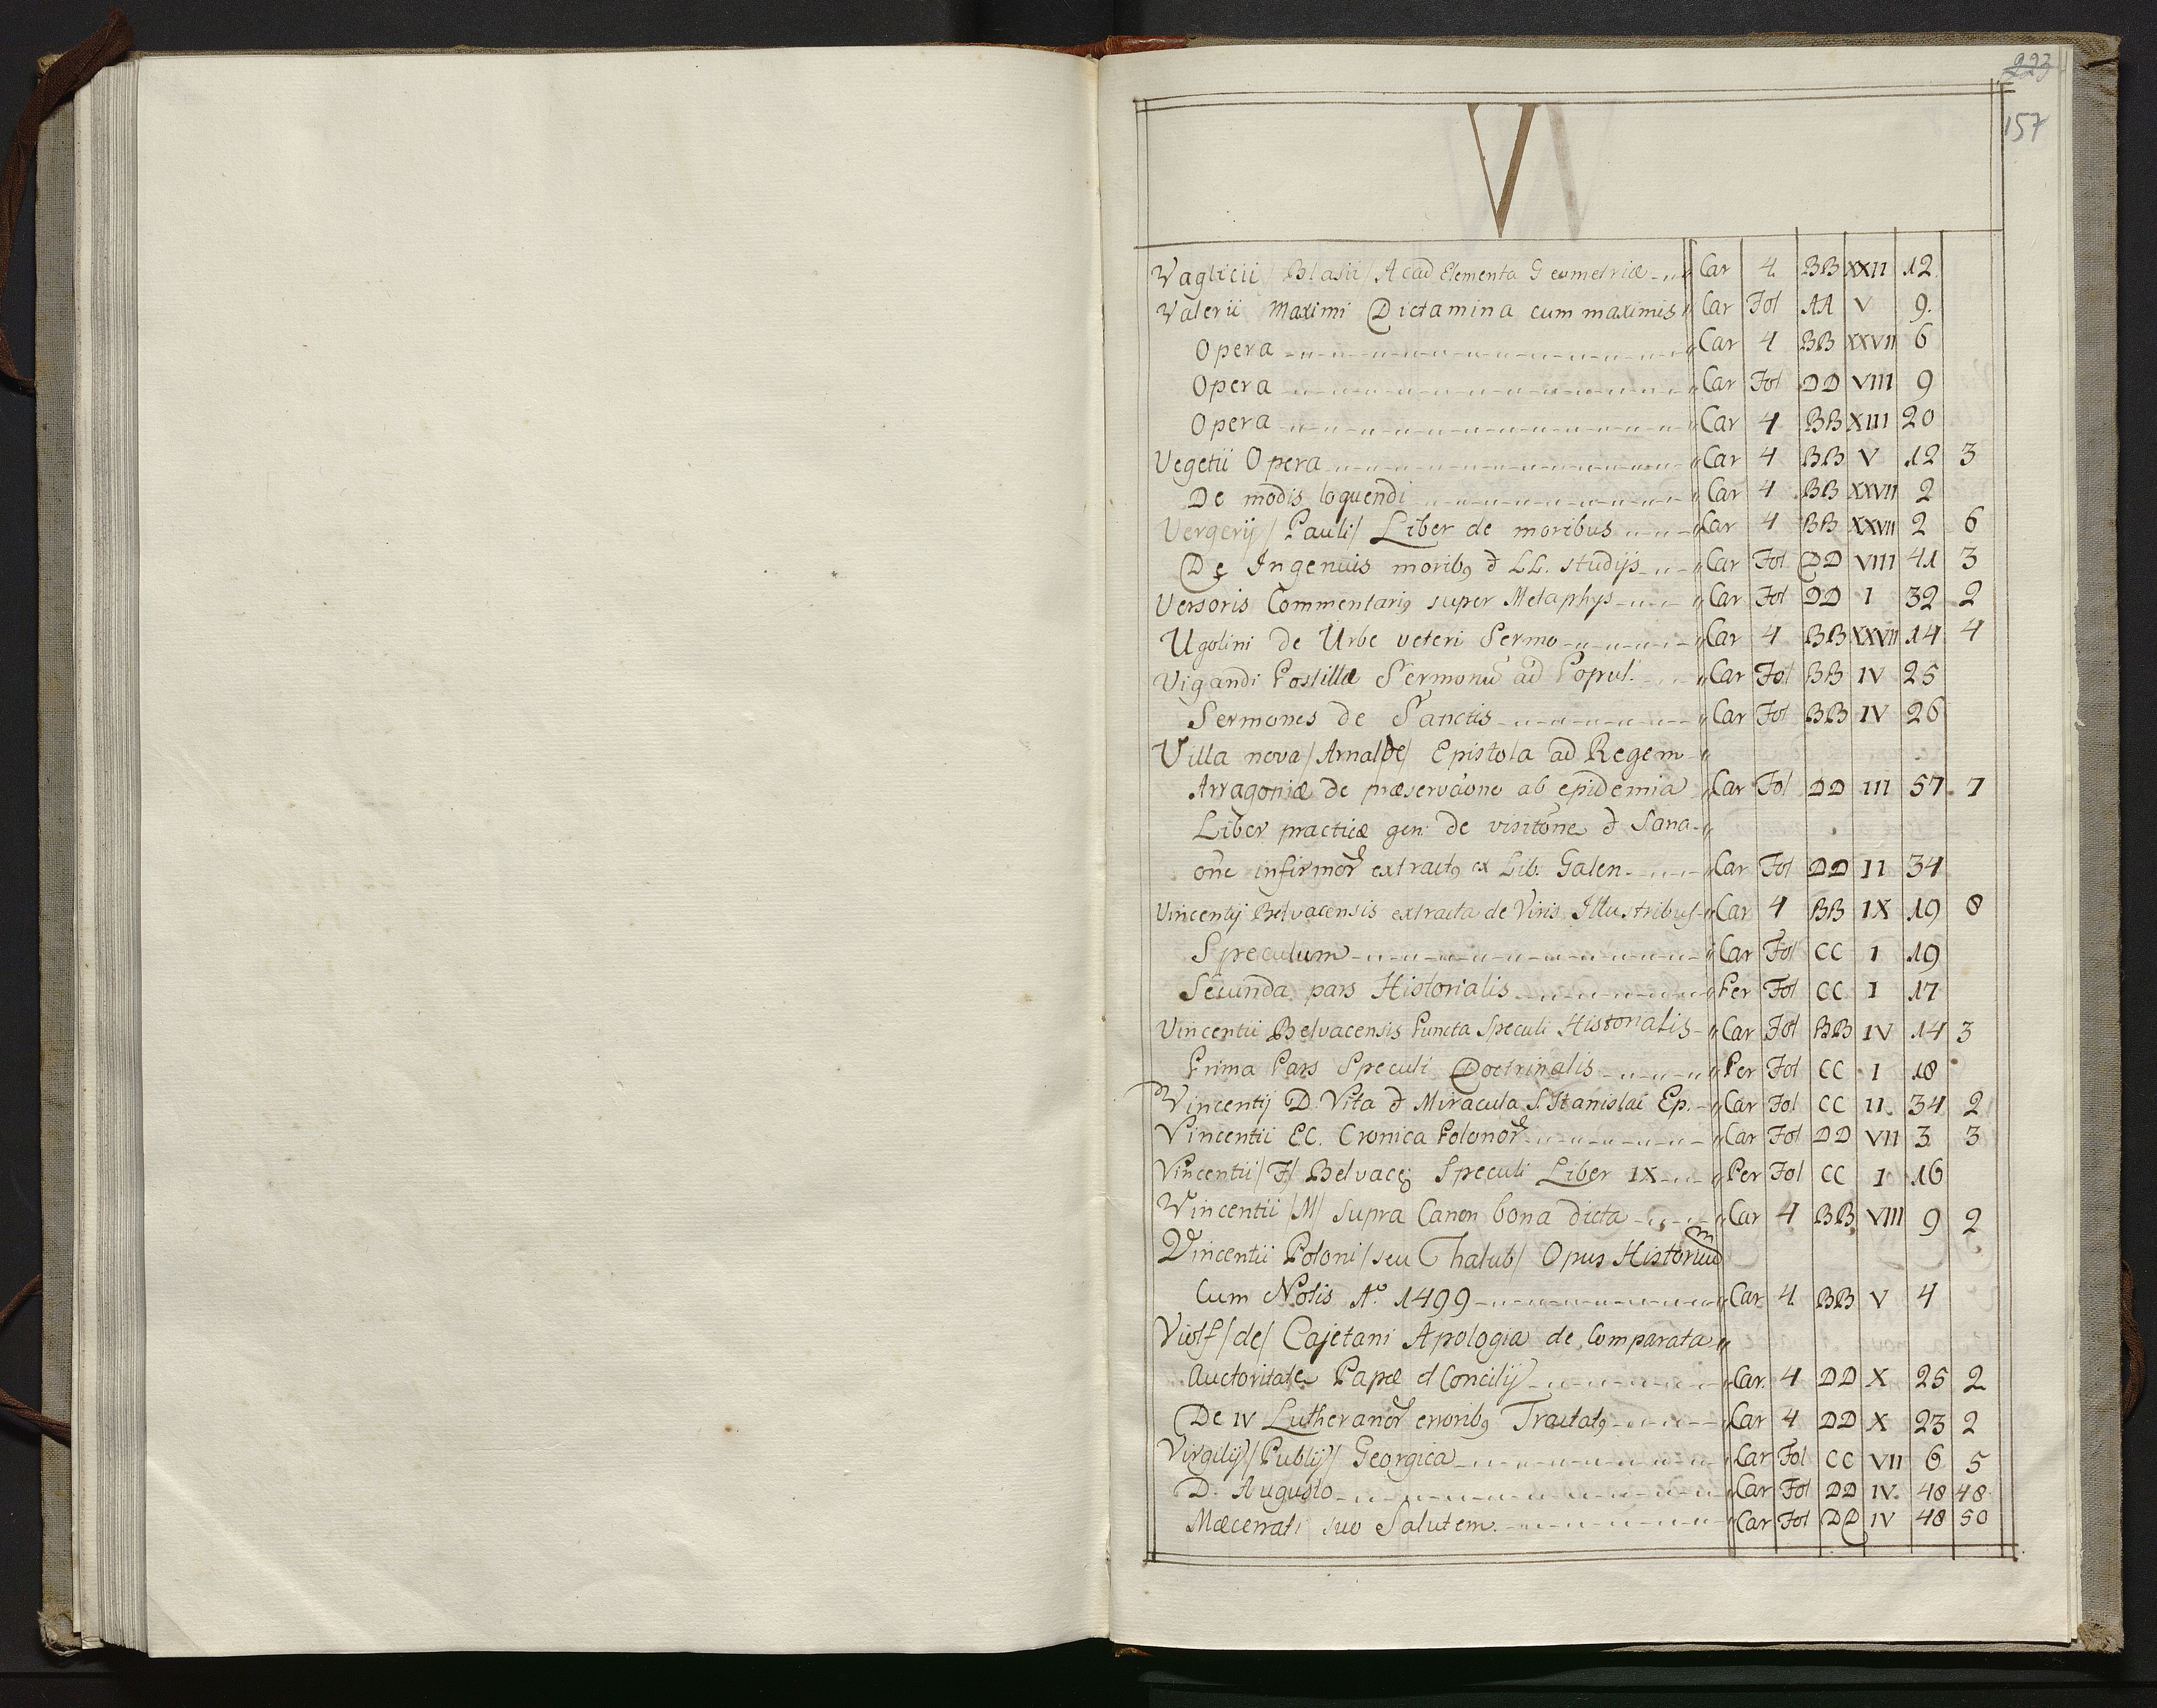 223
157
V
Waglicii / Blasii / Acad Elementa Geometriæ Car 4 BB XXII 12
Valerii Maximi Dictamina cum maximis Car Fol AA V 9.
Opera Car 4 BB XXVII 6
Opera Car Fol DD VIII 9
Opera Car 4 BB XIII 20
Vegetii Opera Car 4 BB V 12 3
De modis loquendi Car 4 BB XXVII 2
Vergerij / Pauli / Liber de moribus Car 4 BB XXVII 2 6
De Ingenuis moribꝯ & LL. studijs Car Fol DD VIII 41 3
Versoris Commentariꝯ super Metaphys Car Fol DD I 32 2
Ugolini de Urbe veteri Sermo Car 4 BB XXVII 14 4
Vigandi Postillæ Sermonū ad Popul. Car Fol BB IV 25
Sermones de Sanctis Car Fol BB IV 26
Villa nova / Arnalde / Epistola ad Regem
Arragoniæ de præservãone ab epidemia Car Fol DD III 57 7
Liber practicæ gen: de visitõne & Sana-
õne infirmoꝝ extractꝯ ex Lib. Galen. Car Fol DD II 34
Vincentij Belvacensis extracta de Viris Illustribus Car 4 BB IX 19 8
Speculum Car Fol CC I 19
Secunda pars Historialis Per Fol CC I 17
Vincentii Belvacensis Puncta Speculi Historialis Car Fol BB IV 14 3
Prima Pars Speculi Doctrinalis Per Fol CC I 18
Wincentij D. Vita & Miracula S. Stanislai Ep. Car Fol CC II. 34 2
Vincentii EC. Cronica Polonoꝝ Car Fol DD VII 3 3
Vincentii / F / Belvaceꝫ Speculi Liber IX Per Fol CC I 16
Wincentii / M / supra Canon bona dicta Car 4 BB VIII 9 2
Vincentii Poloni / seu Thalub / Opus Historicum
Cum Notis Aº. 1499 Car 4 BB V 4
Viof / de / Cajetani Apologia de Comparata
Auctoritate Papæ et Concilij Car. 4 DD X 25 2
De IV Lutheranoꝝ erroribꝯ Tractatꝯ Car 4 DD X 23 2
Virgilij / Publij / Georgica Car Fol CC VII 6 5
D. Augusto Car Fol DD IV. 48 48
Mæcenati suo Salutem. Car Fol DD IV 48 50